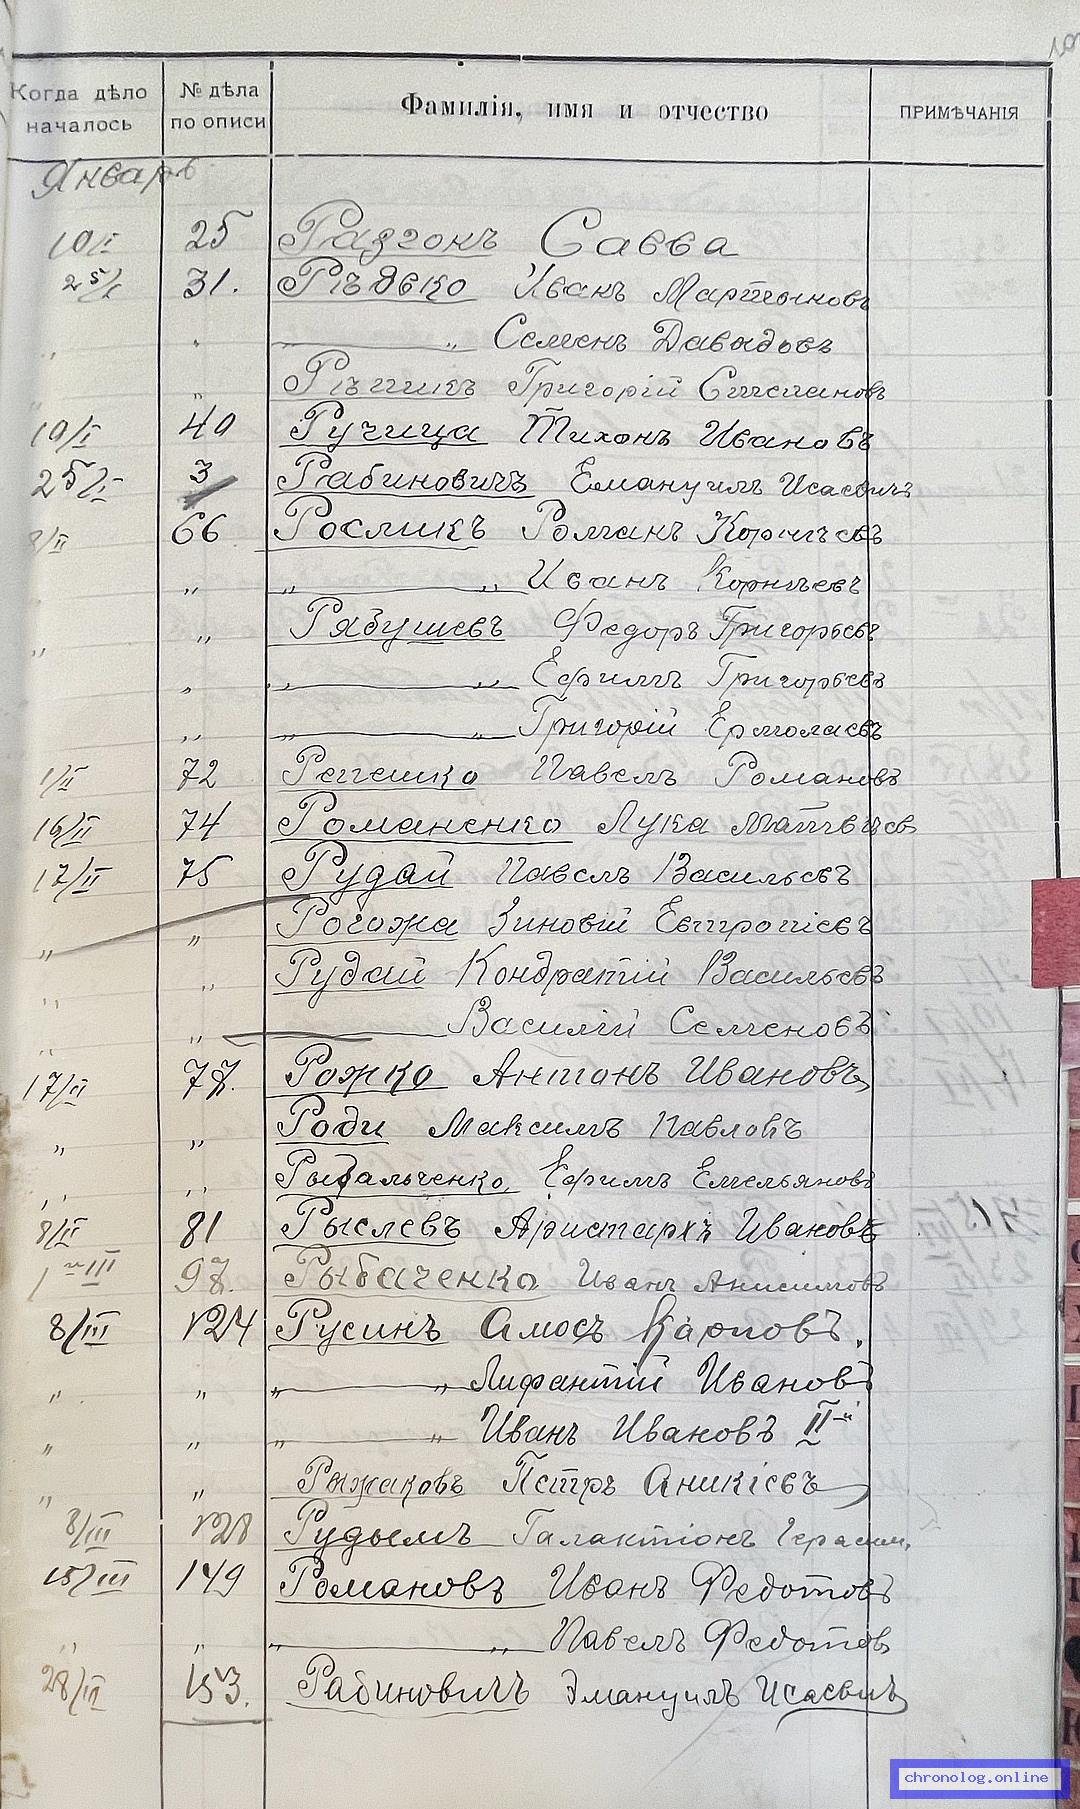 Когда дѣло началось № дѣла по описи Фамилія, имя и отчество ПРИМѢЧАНІЯ
Январь
10/I 25 Разгонъ Савва
25/I 31. Рѣдько Иванъ Мартыновъ
„ „ „ Семенъ Давыдовъ
„ „ Григорій Степановъ
19/I 40 Ручица Тихонъ Ивановъ
25/I 3 Рабиновичъ Емануилъ Исаевичъ
8/II 66 Росликъ Романъ Корнѣевъ
„ „ „ „ Иванъ Корнѣевъ
„ „ Рябушевъ Федоръ Григорьевъ
„ „ „ Ефимъ Григорьевъ
„ „ „ Григорій Ермолаевъ
1/II 72 Репешко Павелъ Романовъ
16/II 74 Романенко Лука Матвѣевъ
17/II 75 Рудай Павелъ Васильевъ
„ „ Рогожа Зиновій Евтропіевъ
„ „ Рудай Кондратій Васильевъ
„ „ Василій Семеновъ
17/II 77. Рожко Антонъ Ивановъ
„ „ Роди Максимъ Павловъ
„ „ Рыбальченко Ефимъ Емельяновъ
8/II 81 Рыслевъ Аристархъ Ивановъ
1/III 97. Рыбаченко Иванъ Анисимовъ
8/III 124 Русинъ Амосъ Карповъ.
„ „ „ „ Лифантій Ивановъ
„ „ „ „ Иванъ Ивановъ II-й
„ „ Рыжаковъ Петръ Аникіевъ
8/III 128 Рудымъ Галактіонъ Герасим.
15/III 149 Романовъ Иванъ Федотовъ
„ „ „ „ Павелъ Федотов
28/III 153. Рабиновичъ Эмануилъ Исаевичъ
chronolog.online